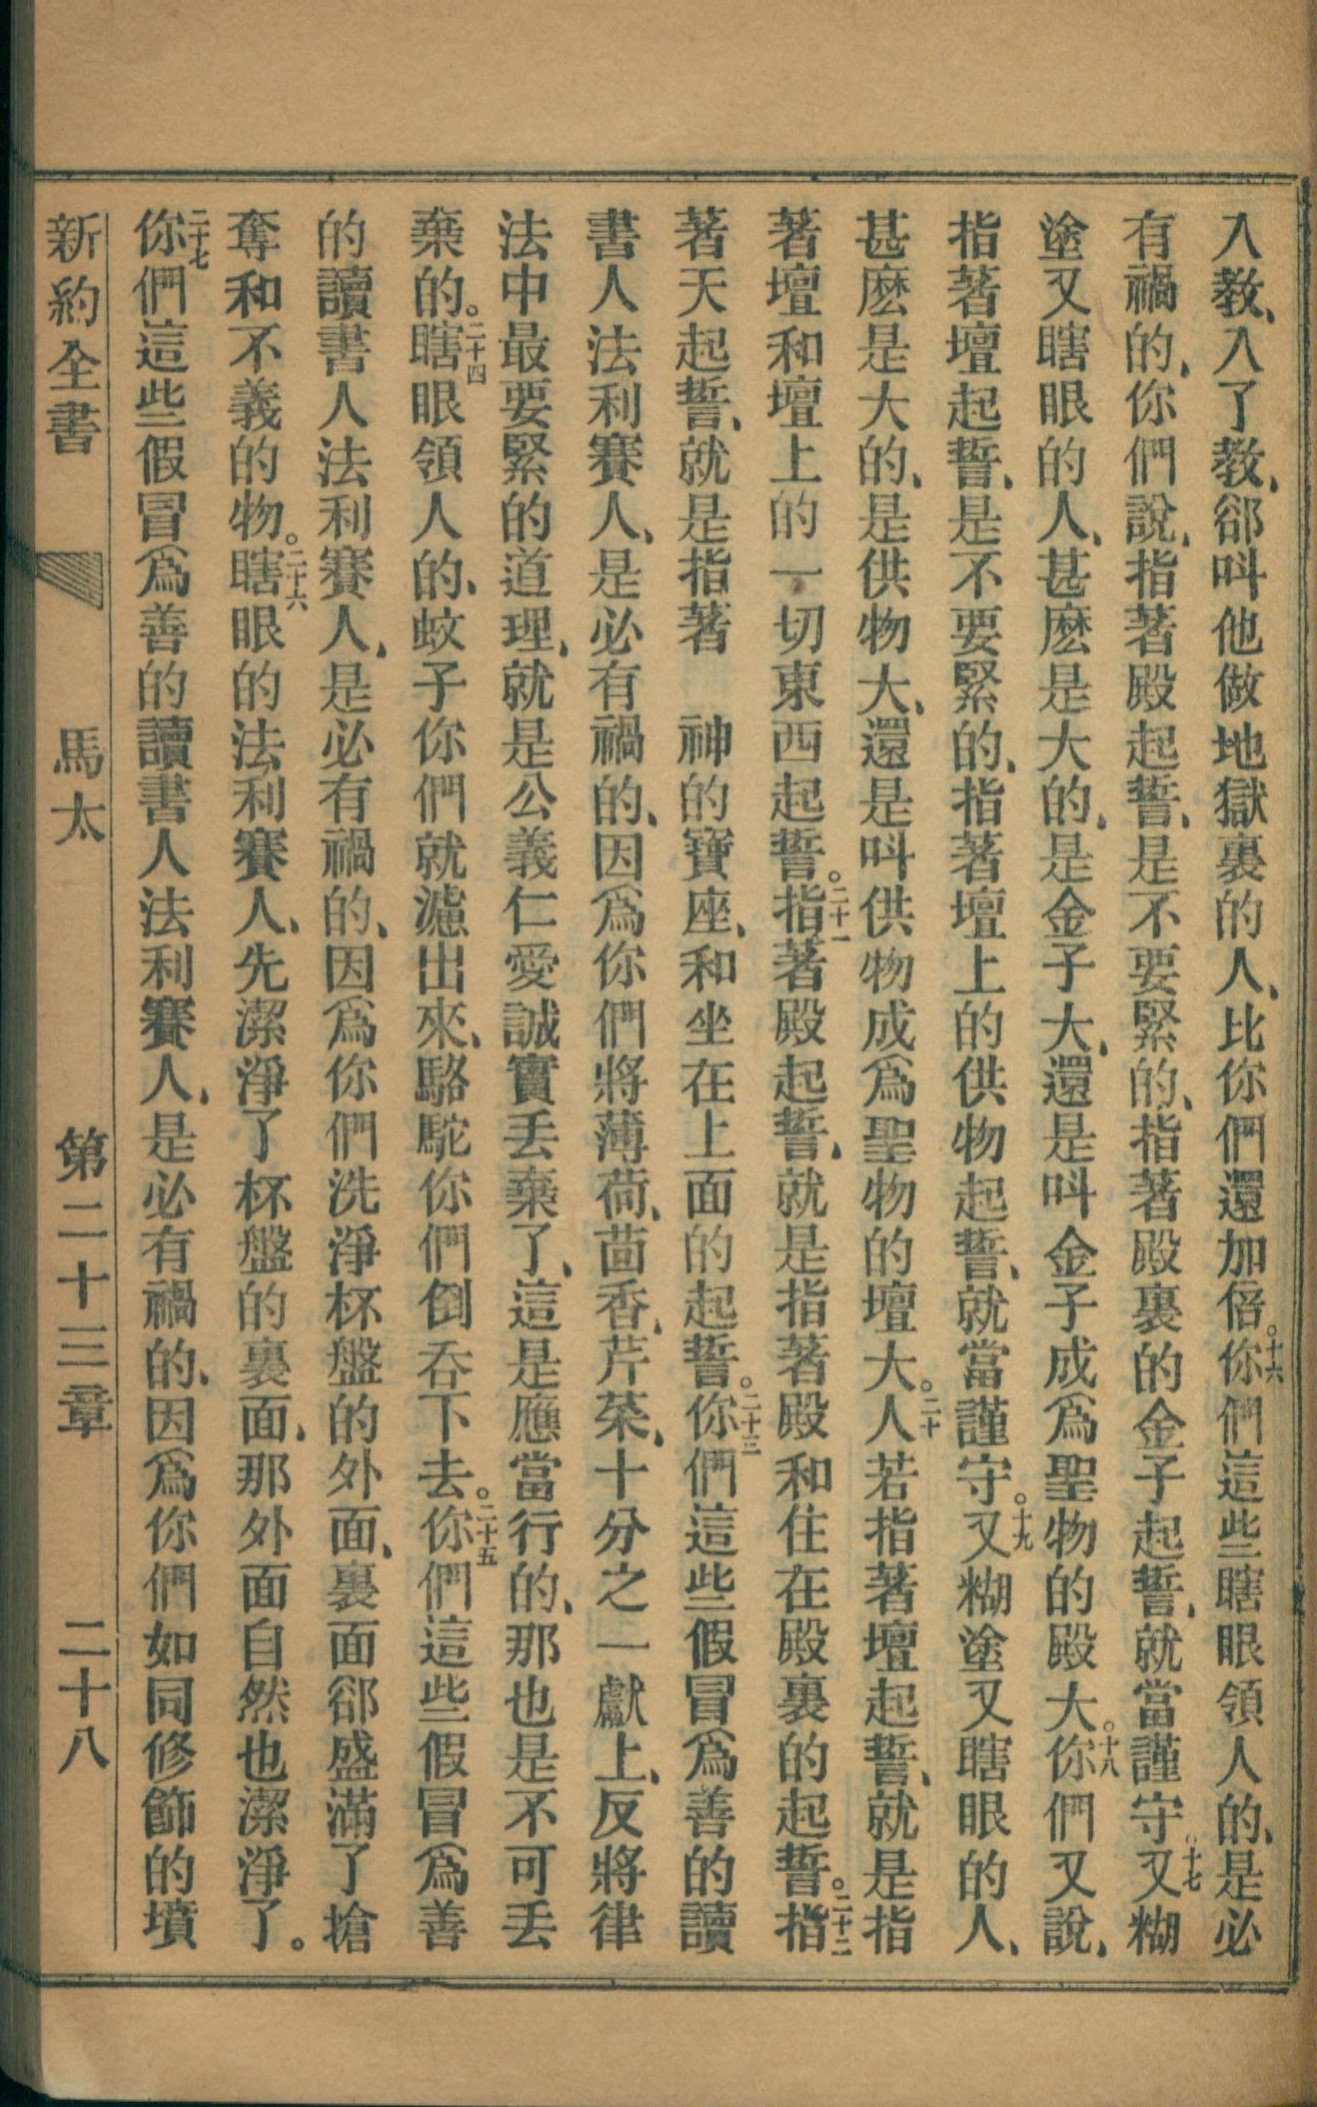 入教、入了教、卻呌他做地獄裏的人、比你們還加倍。十六你們這些瞎眼領人的、是必
有禍的、你們說、指著殿起誓、是不要緊的、指著殿裏的金子起誓、就當謹守。十七又糊
塗又瞎眼的人、甚麽是大的、是金子大、還是呌金子成爲聖物的殿大。十八你們又說、
指著壇起誓、是不要緊的、指著壇上的供物起誓、就當謹守。十九又糊塗又瞎眼的人、
甚麽是大的、是供物大、還是呌供物成爲聖物的壇大。二十人若指著壇起誓、就是指
著壇和壇上的一切東西起誓。二十一指著殿起誓、就是指著殿和住在殿裏的起誓。二十二指
著天起誓、就是指著　神的寶座、和坐在上面的起誓。二十三你們這些假冒爲善的讀
書人法利賽人、是必有禍的、因爲你們將薄荷、茴香、芹菜、十分之一獻上、反將律
法中最要緊的道理、就是公義仁愛誠實丢棄了、這是應當行的、那也是不可丢
棄的。二十四瞎眼領人的、蚊子你們就濾出來、駱駝你們倒吞下去。二十五你們這些假冒爲善
的讀書人法利賽人、是必有禍的、因爲你們洗淨杯盤的外面、裏面卻盛滿了搶
奪和不義的物。二十六瞎眼的法利賽人、先潔淨了杯盤的裏面、那外面自然也潔淨了。
二十七你們這些假冒爲善的讀書人法利賽人、是必有禍的、因爲你們如同修飾的墳
新約全書　馬太　第二十三章　二十八